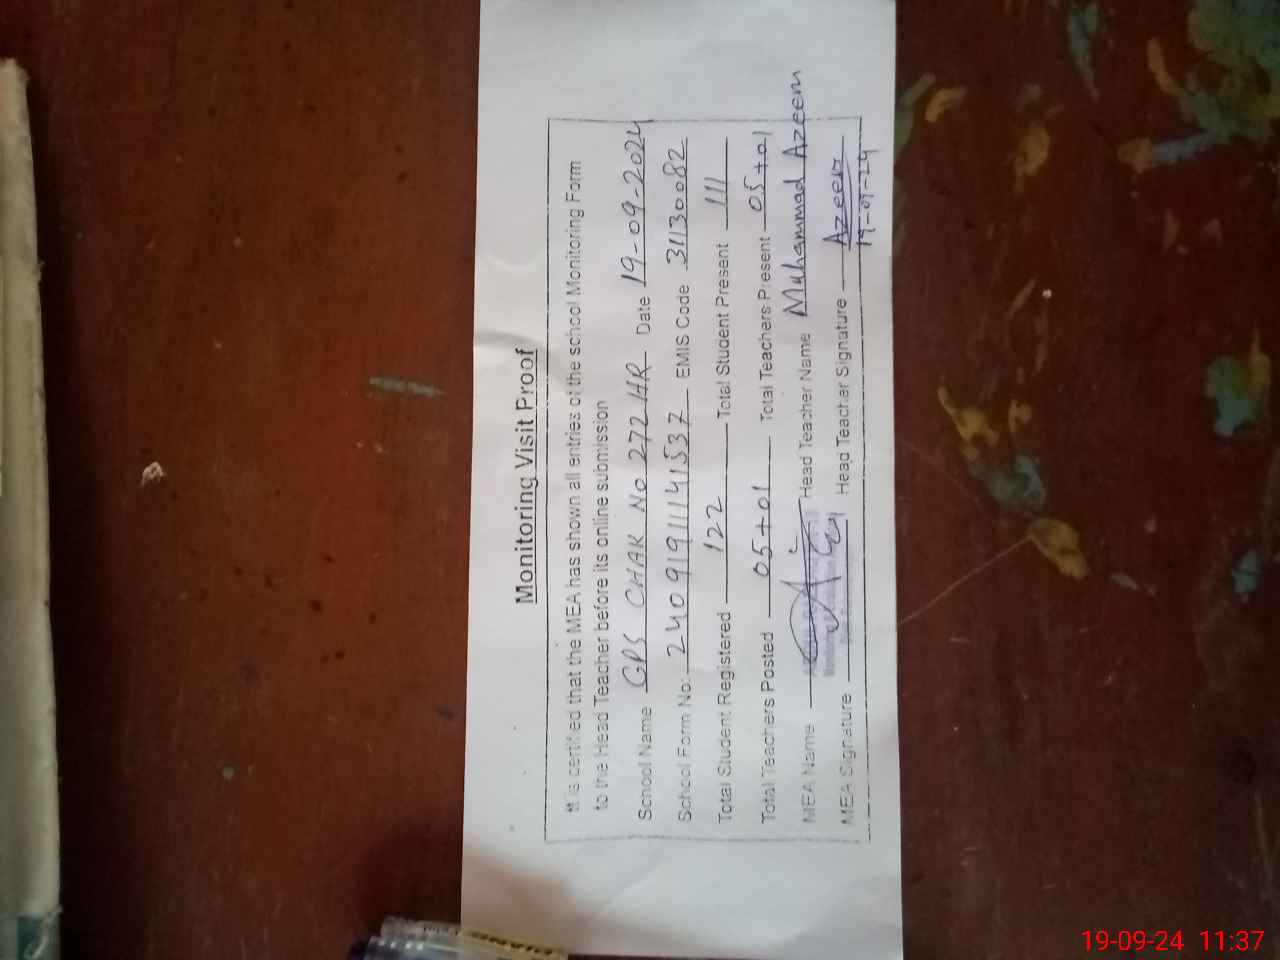 Monitoring Visit Proof
It is certified that the MEA has shown all entries of the school Monitoring Form
to the Head Teacher before its online submission
School Name GPS CHAK No 272 HR Date 19-09-2024
School Form No: 2409191114 1537 EMIS Code 31130082
Total Student Registered 122 Total Student Present 111
Total Teachers Posted 05+01 Total Teachers Present 05+01
MEA Name Head Teacher Name Muhammad Azeem
MEA Signature Head Teacher Signature Azeem
19-09-24
19-09-24 11:37